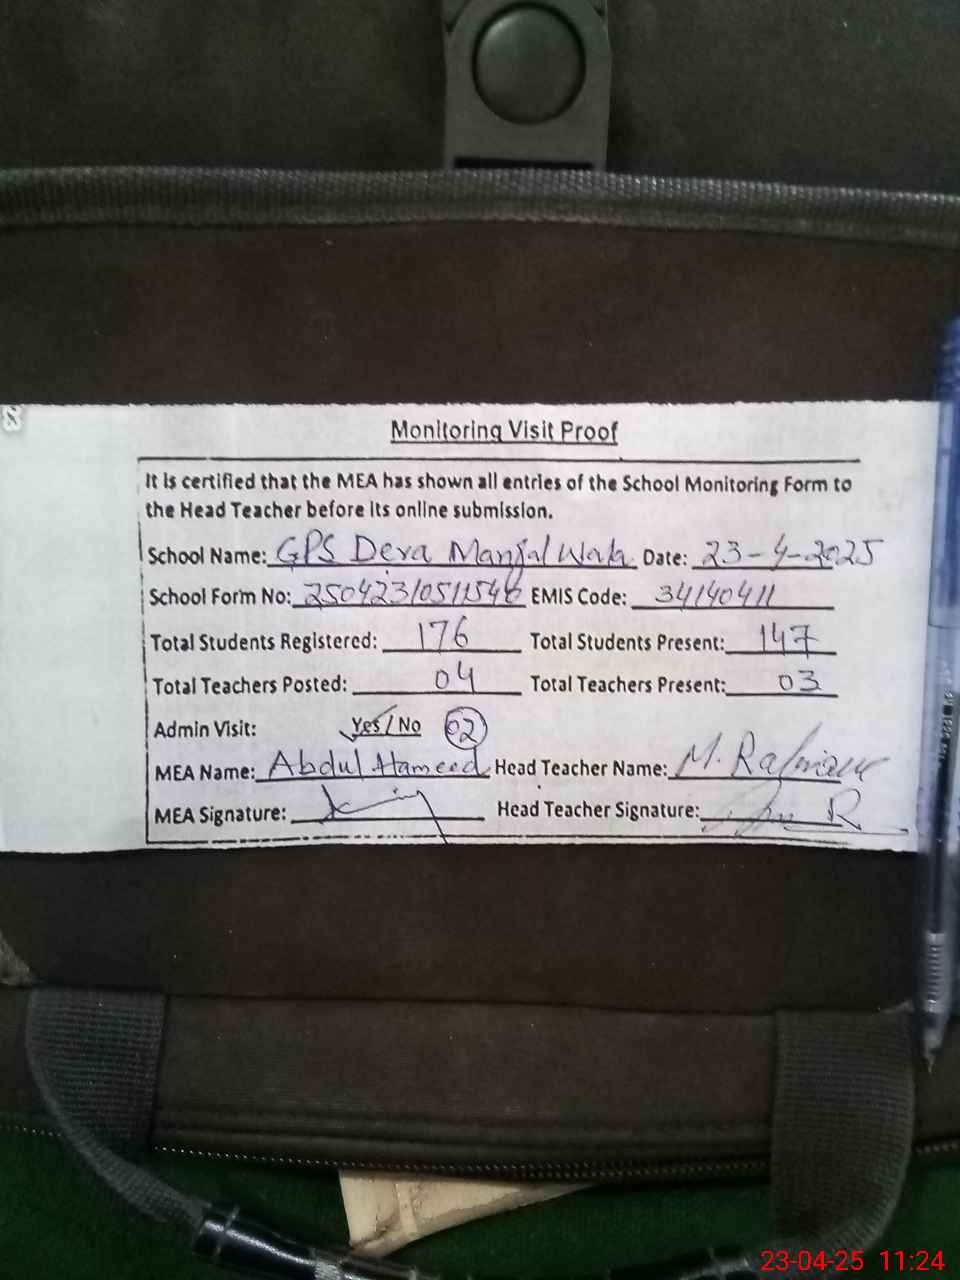 Monitoring Visit Proof
It is certified that the MEA has shown all entries of the School Monitoring Form to
the Head Teacher before its online submission.
School Name: GPS Dera Manjal Wala Date: 23-4-2025
School Form No: 25042310511546 EMIS Code: 34140411
Total Students Registered: 176 Total Students Present: 147
Total Teachers Posted: 04 Total Teachers Present: 03
Admin Visit: Yes / No 02
MEA Name: Abdul Hameed Head Teacher Name: M.
MEA Signature: Head Teacher Signature:
23-04-25 11:24